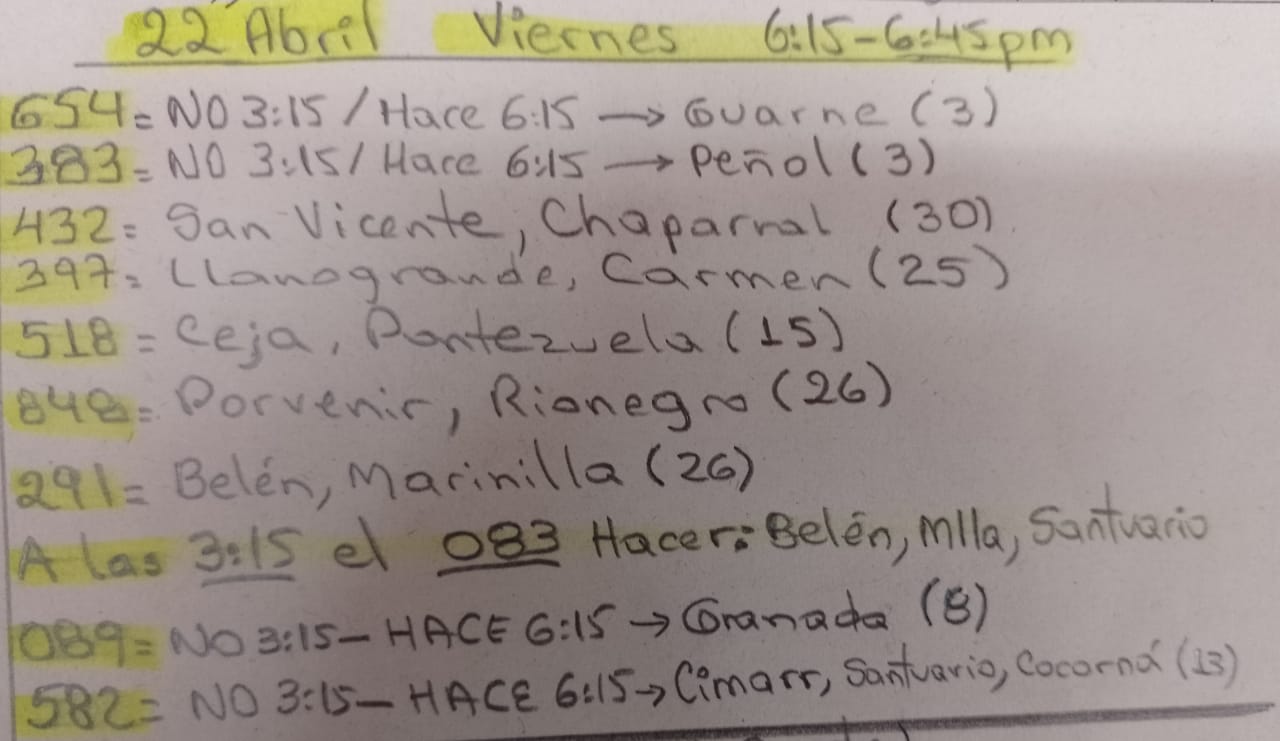 22 Abril Viernes 6:15-6:45pm
654= NO 3:15 / Hace 6:15 → Guarne (3)
383= NO 3:15 / Hace 6:15 → Peñol (3)
432= San Vicente, Chaparral (30)
397= Llanogrande, Carmen (25)
518= Ceja, Pontezuela (15)
848= Porvenir, Rionegro (26)
291= Belén, Marinilla (26)
A las 3:15 el 083 Hacer: Belén, Mlla, Santuario
089= NO 3:15- HACE 6:15 → Granada (8)
582= NO 3:15- HACE 6:15 → Cimarr, Santuario, Cocorná (13)